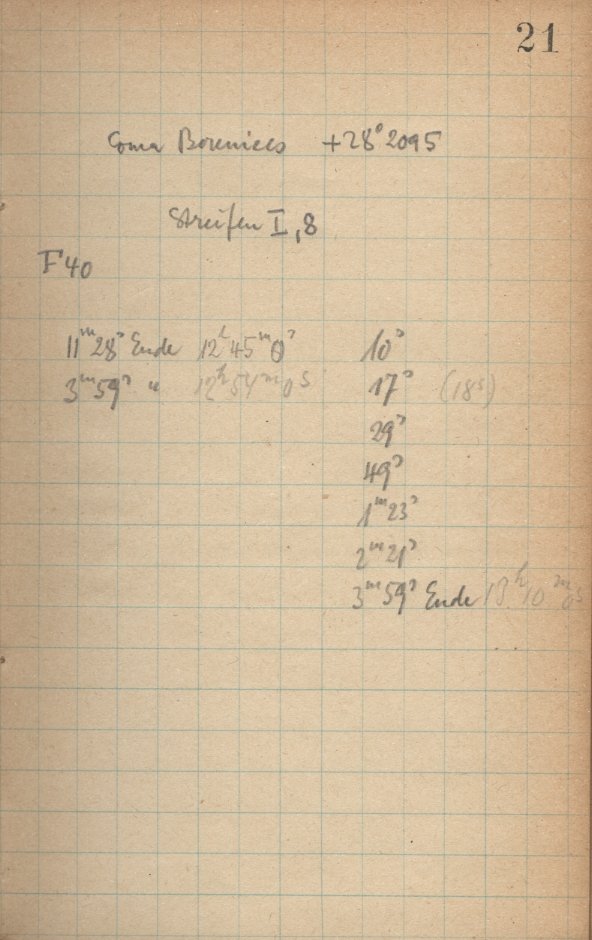 21
Coma Berenices +28°2095
Streifen I, 8
F40
11ᵐ28ˢ Ende 12ʰ45ᵐ0ˢ 10ˢ
3ᵐ59ˢ " 12ʰ54ᵐ0ˢ 17ˢ (18ˢ)
29ˢ
49ˢ
1ᵐ23ˢ
2ᵐ21ˢ
3ᵐ59ˢ Ende 13ʰ10ᵐ0ˢ